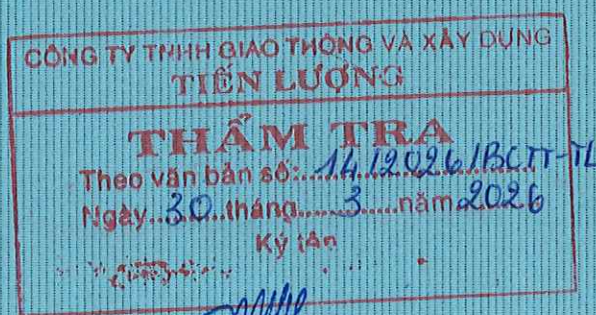 CÔNG TY TNHH GIAO THÔNG VÀ XÂY DỰNG
TIẾN LƯỢNG
THẨM TRA
Theo văn bản số:..14./2026/BCTT-TL
Ngày..30..tháng.....3.....năm 2026
Ký tên